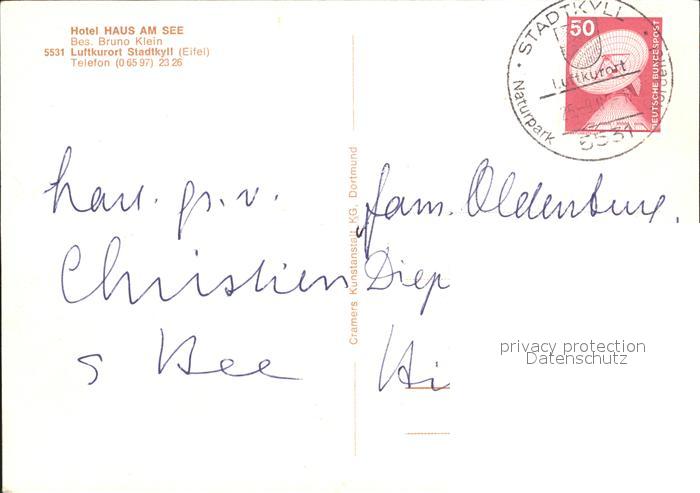 Hotel HAUS AM SEE
Bes. Bruno Klein
5531 Luftkurort Stadtkyll (Eifel)
Telefon (0 65 97) 23 26
STADTKYLL
Luftkurort
Naturpark
5531
50
DEUTSCHE BUNDESPOST
Cramers Kunstanstalt KG, Dortmund
hart. gr. v.
Christien
s Bee
fam. Oldenburg.
Diep
Hi
privacy protection
Datenschutz